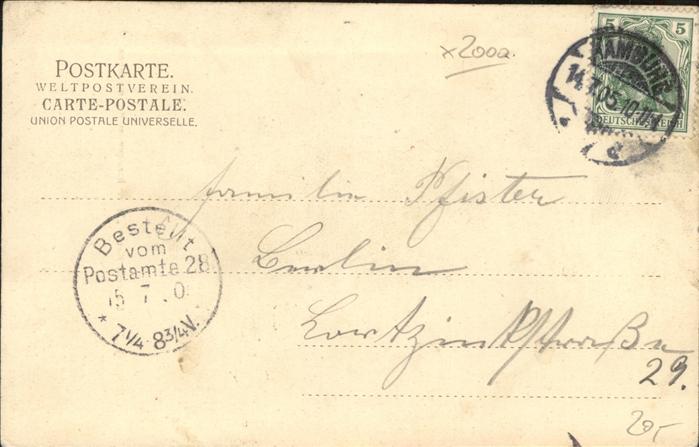 POSTKARTE.
WELTPOSTVEREIN.
CARTE-POSTALE.
UNION POSTALE UNIVERSELLE.
x200a
5 5
DEUTSCHES REICH
HAMBURG
14.7.05.10-11V
Familie Pfister
Berlin
Lortzinkstraße
29.
Bestellt
vom
Postamte 28
15 7 0
* 7 1/4-8 3/4 V.
20,-